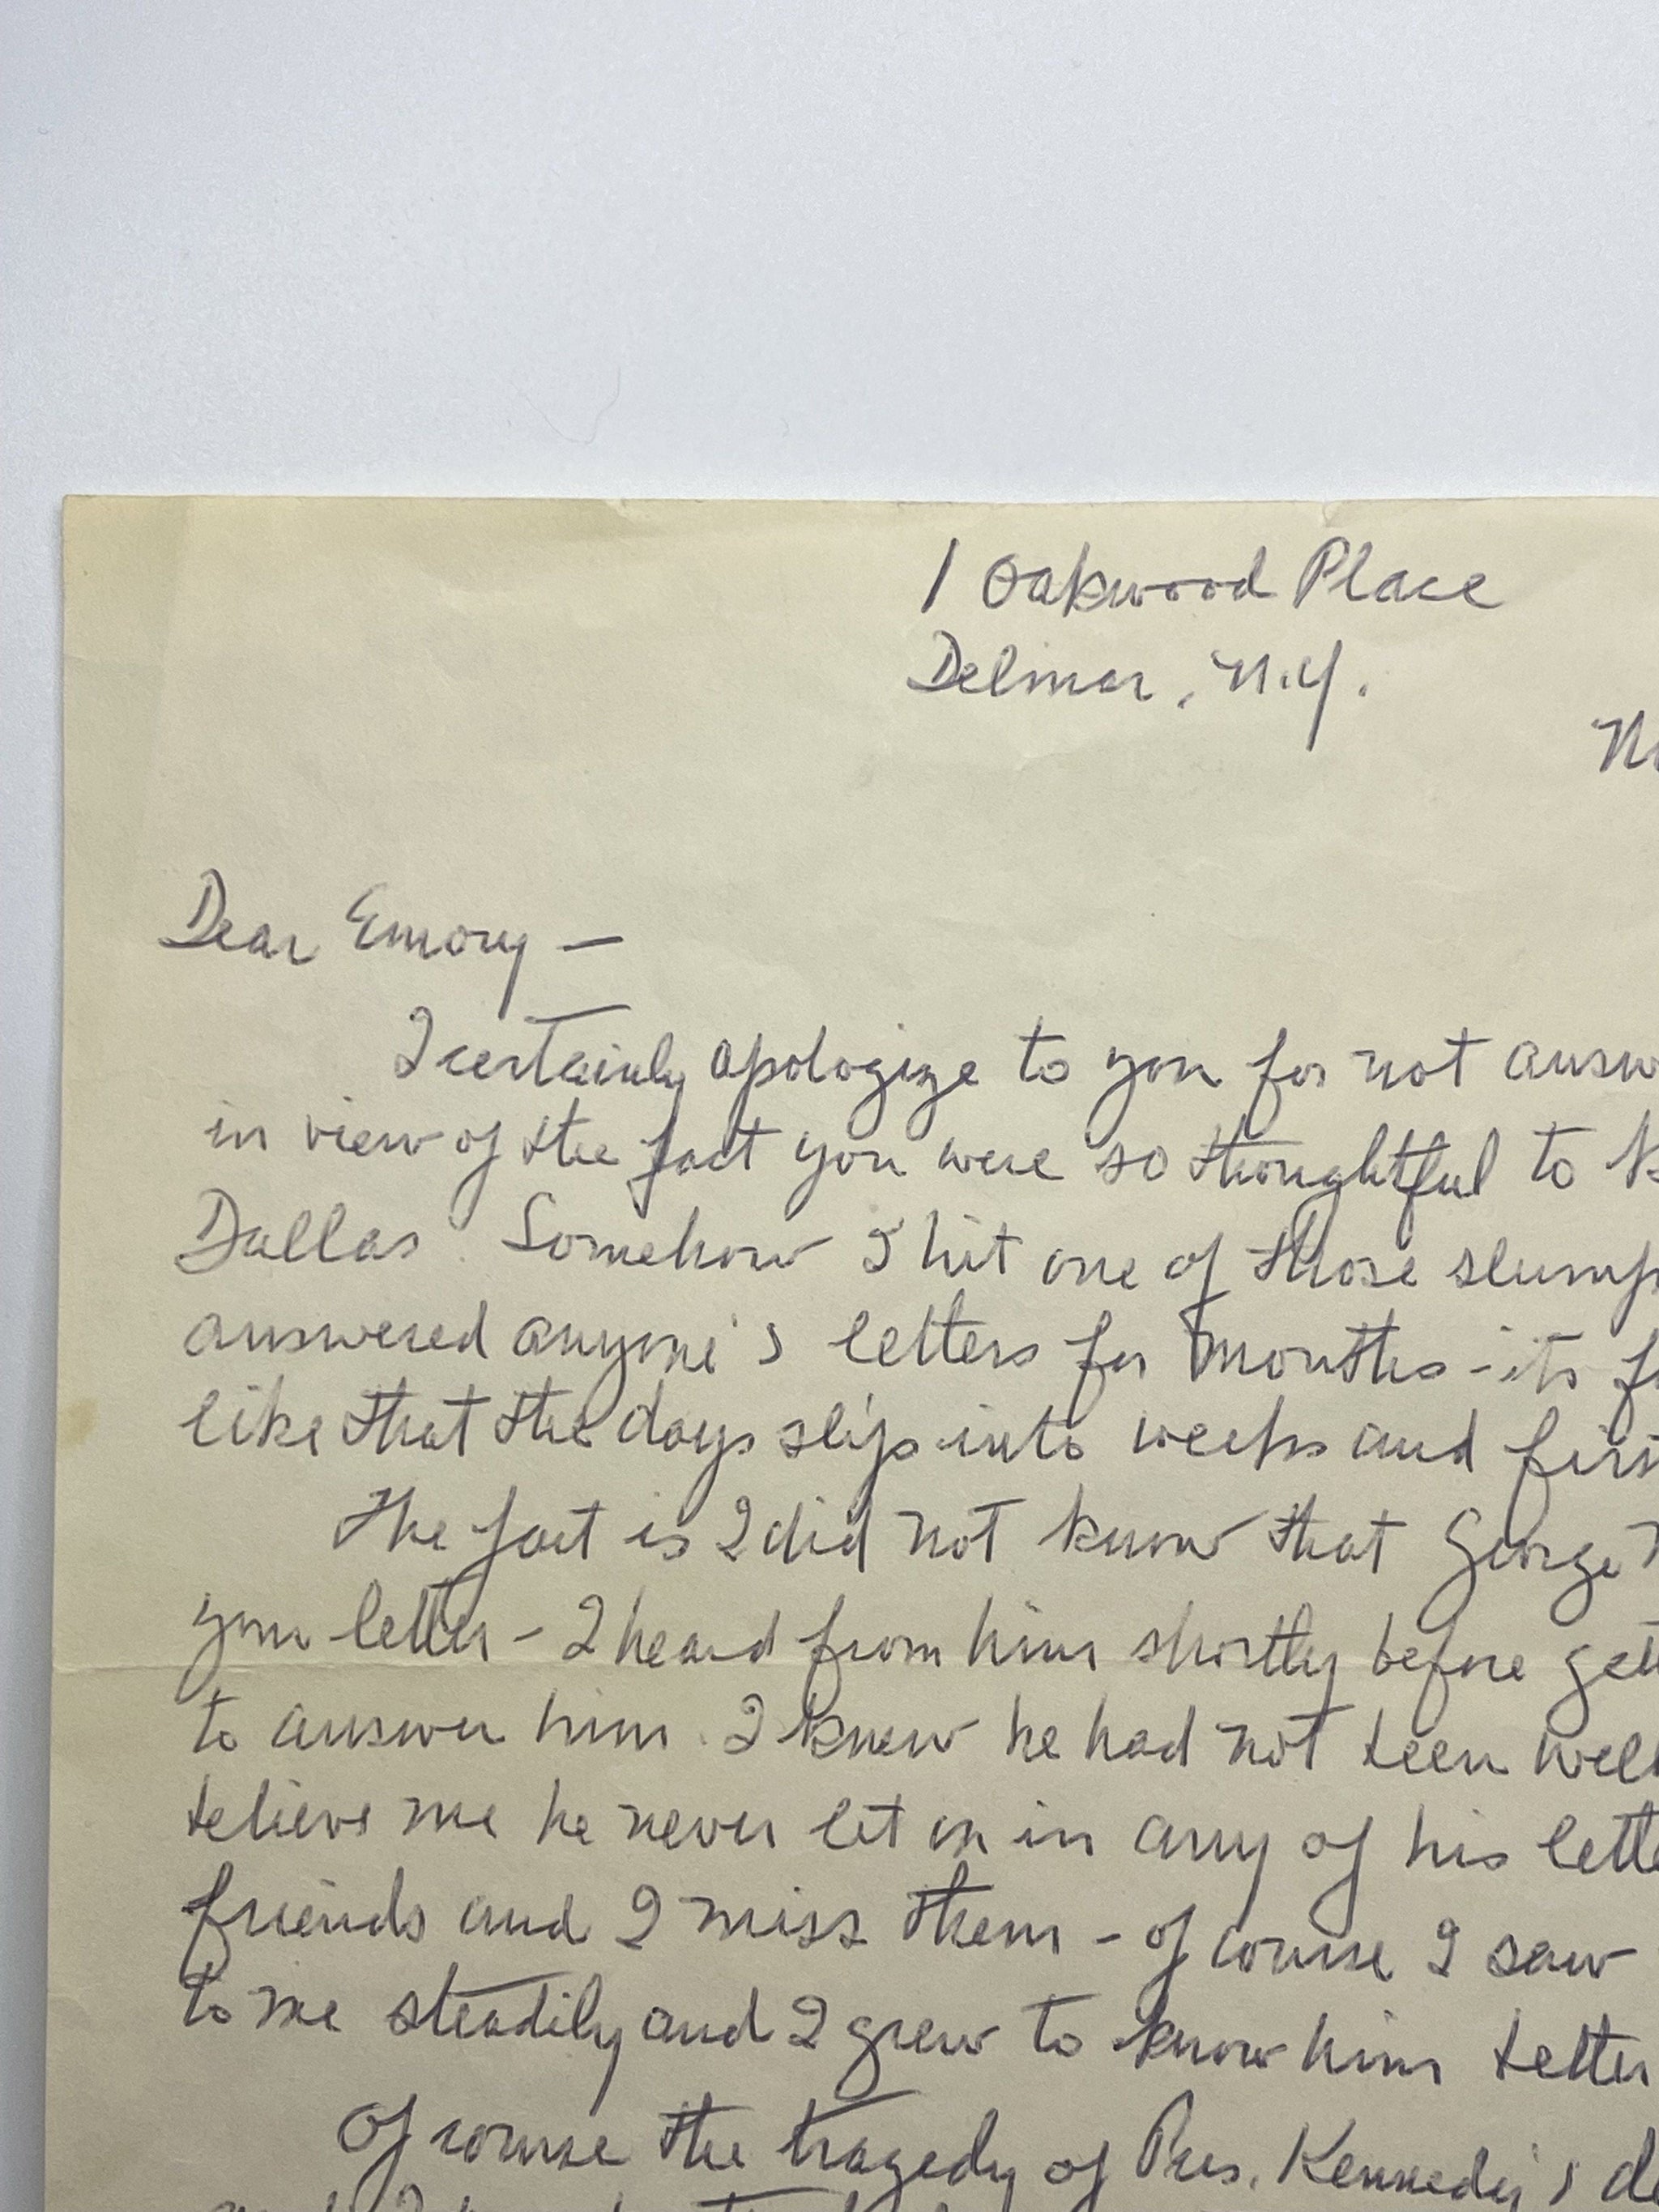 1 Oakwood Place
Delmar, N.Y.
Dear Emory —
I certainly apologize to you for not answ
in view of the fact you were so thoughtful to k
Dallas. Somehow I hit one of those slump
answered anyone's letters for months - its f
like that the days slip into weeks and firs
The fact is I did not know that George
your letter - I heard from him shortly before gett
to answer him. I knew he had not been well
believe me he never let on in any of his lette
friends and I miss them - of course I saw
to me steadily and I grew to know him better
Of course the tragedy of Pres. Kennedy's de